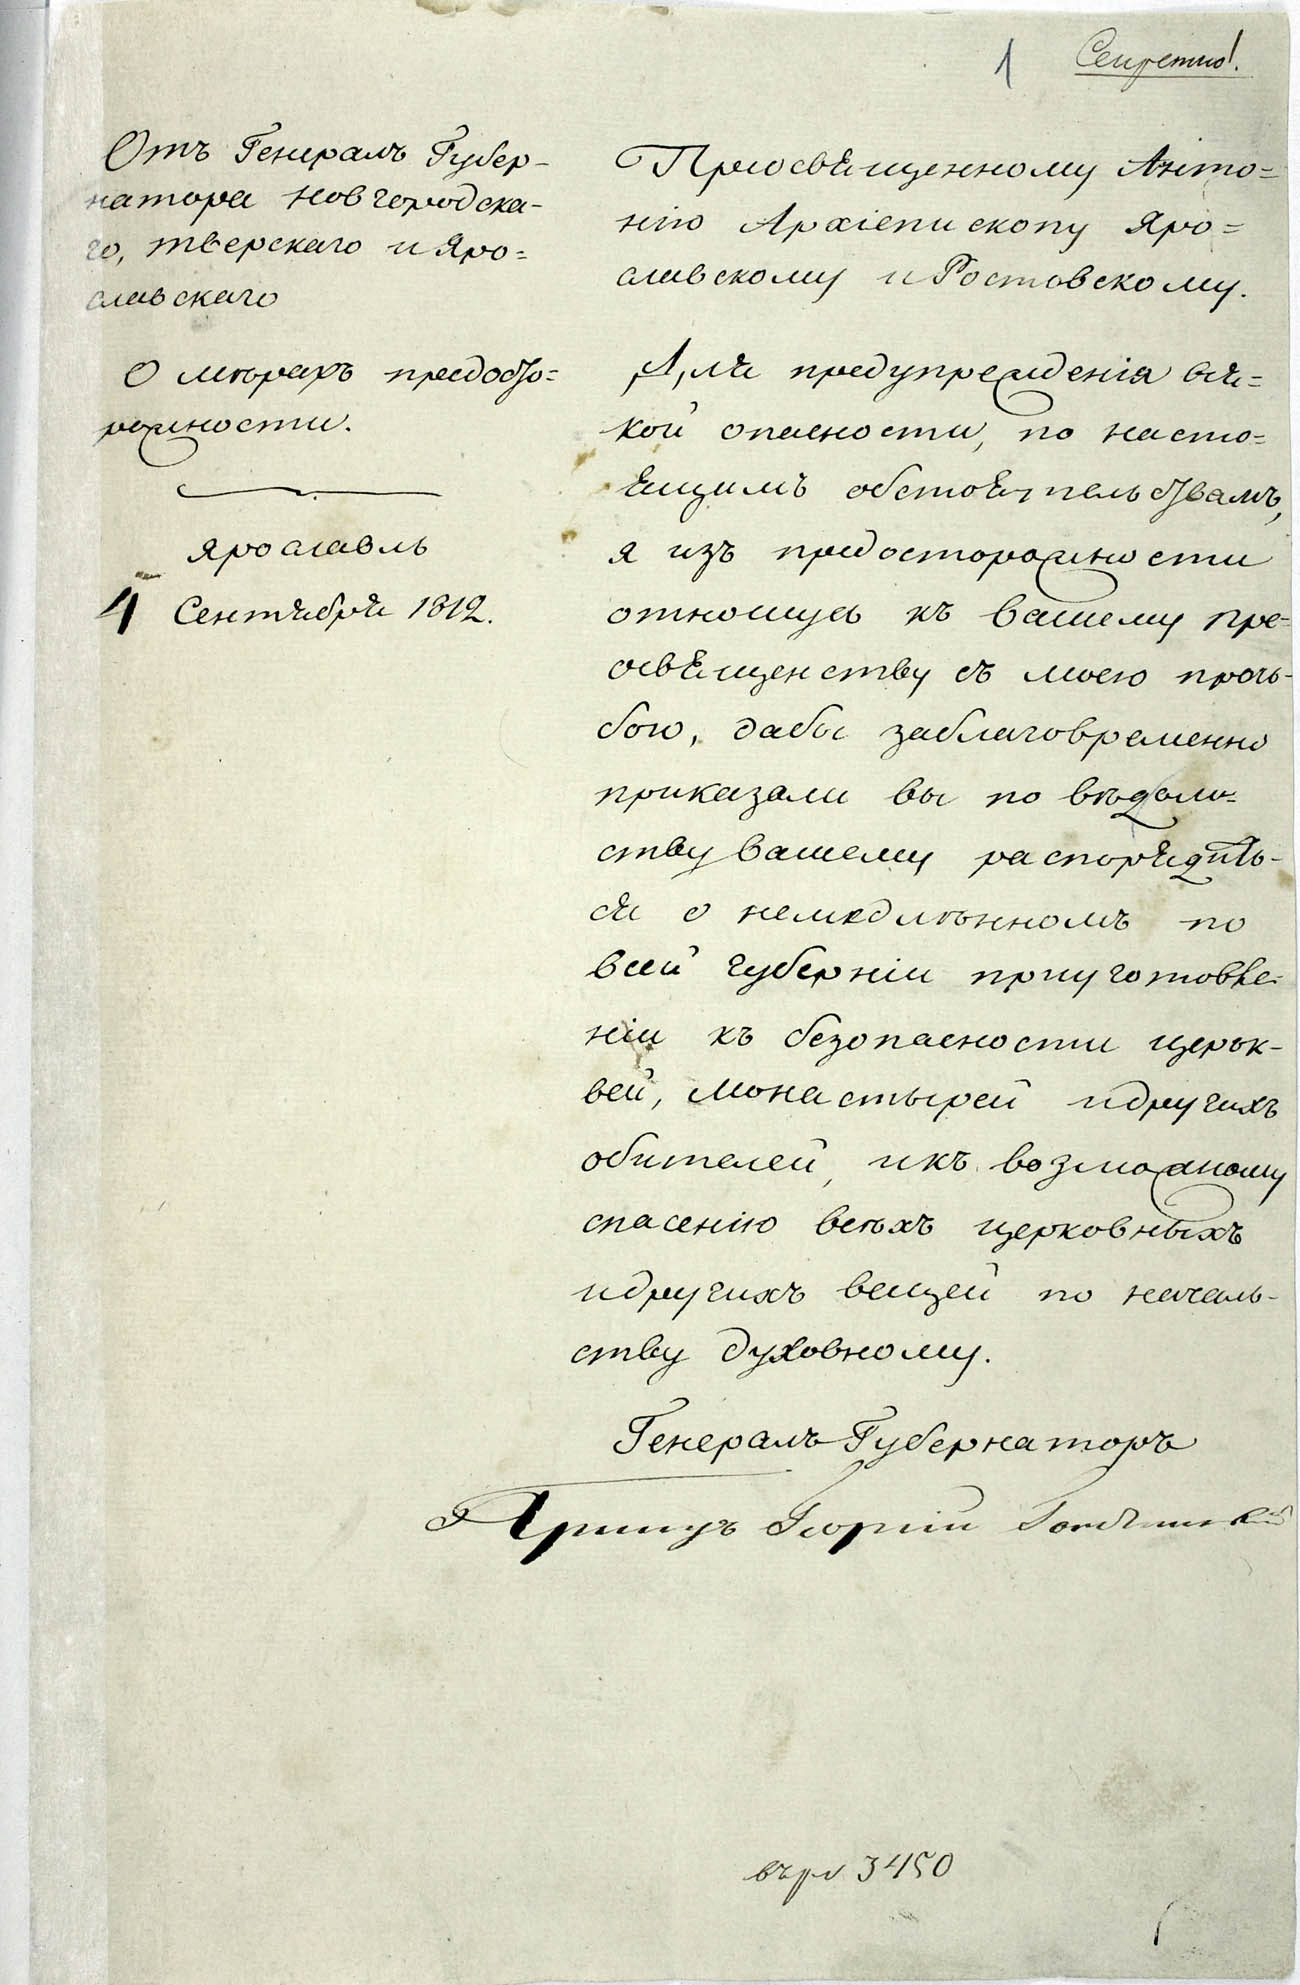 1 Секретно!
Отъ Генералъ Губер-
натора Новгородска-
го, Тверскаго и Яро=
славскаго
О мѣрахъ предосто=
рожности.
Ярославль
4 Сентября 1812.
Преосвященному Анто=
нію Архіепископу Яро=
славскому и Ростовскому.
Для предупрежденія вся=
кой опасности, по насто=
ящимъ обстоятельствамъ,
я изъ предосторожности
отношусь къ вашему Пре=
освященству съ моею прозь-
бою, дабы заблаговременно
приказали вы по вѣдом=
ству вашему распорядить-
ся о немедлѣнномъ по
всей губерніи приуготовле-
ніи къ безопасности церьк-
вей, монастырей и других
обителей, и къ возможному
спасенію всѣхъ церковныхъ
и другихъ вещей по началь-
ству духовному.
Генералъ Губернаторъ
Принцъ Георгій
3450